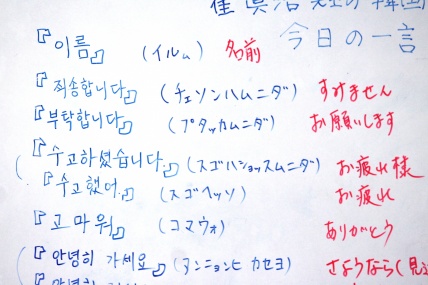 崔真浩先生の韓国
今日の一言
『이름』 (イルム) 名前
『죄송합니다』 (チェソンハムニダ) すみません
『부탁합니다』 (プタッカムニダ) お願いします
『수고하셨습니다』 (スゴハショッスムニダ) お疲れ様
『수고했어』 (スゴヘッソ) お疲れ
『고마워』 (コマウォ) ありがとう
『안녕히 가세요』 (アンニョンヒ カセヨ) さようなら(見